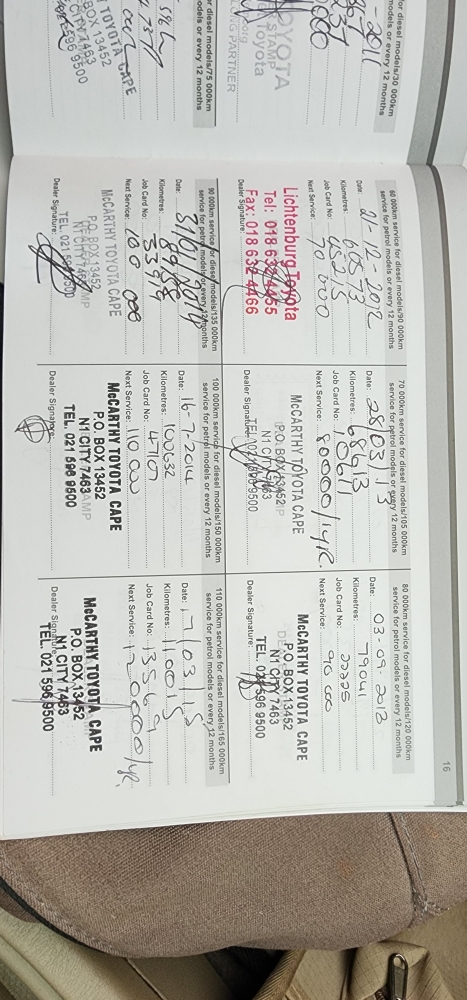 for diesel models/30 000km
models or every 12 months
for diesel models/75 000km
models or every 12 months
16
60 000km service for diesel models/90 000km
service for petrol models or every 12 months
Date: 21-12-2012
Kilometres: 60573
Job Card No: 45213
Next Service: 70 000
Lichtenburg Toyota
Tel: 018 632 4455
Fax: 018 632 4466
Dealer Signature:
70 000km service for diesel models/105 000km
service for petrol models or every 12 months
Date: 28/03/13
Kilometres: 68413
Job Card No: 10611
Next Service: 80000/1yR.
McCARTHY TOYOTA CAPE
P.O. BOX 13452
N1 CITY 7463
TEL. 021 596 9500
Dealer Signature:
80 000km service for diesel models/120 000km
service for petrol models or every 12 months
Date: 03-09-2013
Kilometres: 79041
Job Card No: 22225
Next Service: 90 000
McCARTHY TOYOTA CAPE
P.O. BOX 13452
N1 CITY 7463
TEL. 021 596 9500
Dealer Signature:
90 000km service for diesel models/135 000km
service for petrol models or every 12 months
Date: 31/01/2014
Kilometres:
Job Card No:
Next Service: 100 000
McCARTHY TOYOTA CAPE
P.O. BOX 13452
N1 CITY 7463
TEL. 021 596 9500
Dealer Signature:
100 000km service for diesel models/150 000km
service for petrol models or every 12 months
Date: 16-7-2014
Kilometres: 100632
Job Card No: 47107
Next Service: 110 000
McCARTHY TOYOTA CAPE
P.O. BOX 13452
N1 CITY 7463
TEL. 021 596 9500
Dealer Signature:
110 000km service for diesel models/165 000km
service for petrol models or every 12 months
Date: 17/03/15
Kilometres: 110015
Job Card No: 13569
Next Service:
McCARTHY TOYOTA CAPE
P.O. BOX 13452
N1 CITY 7463
TEL. 021 596 9500
Dealer Signature: